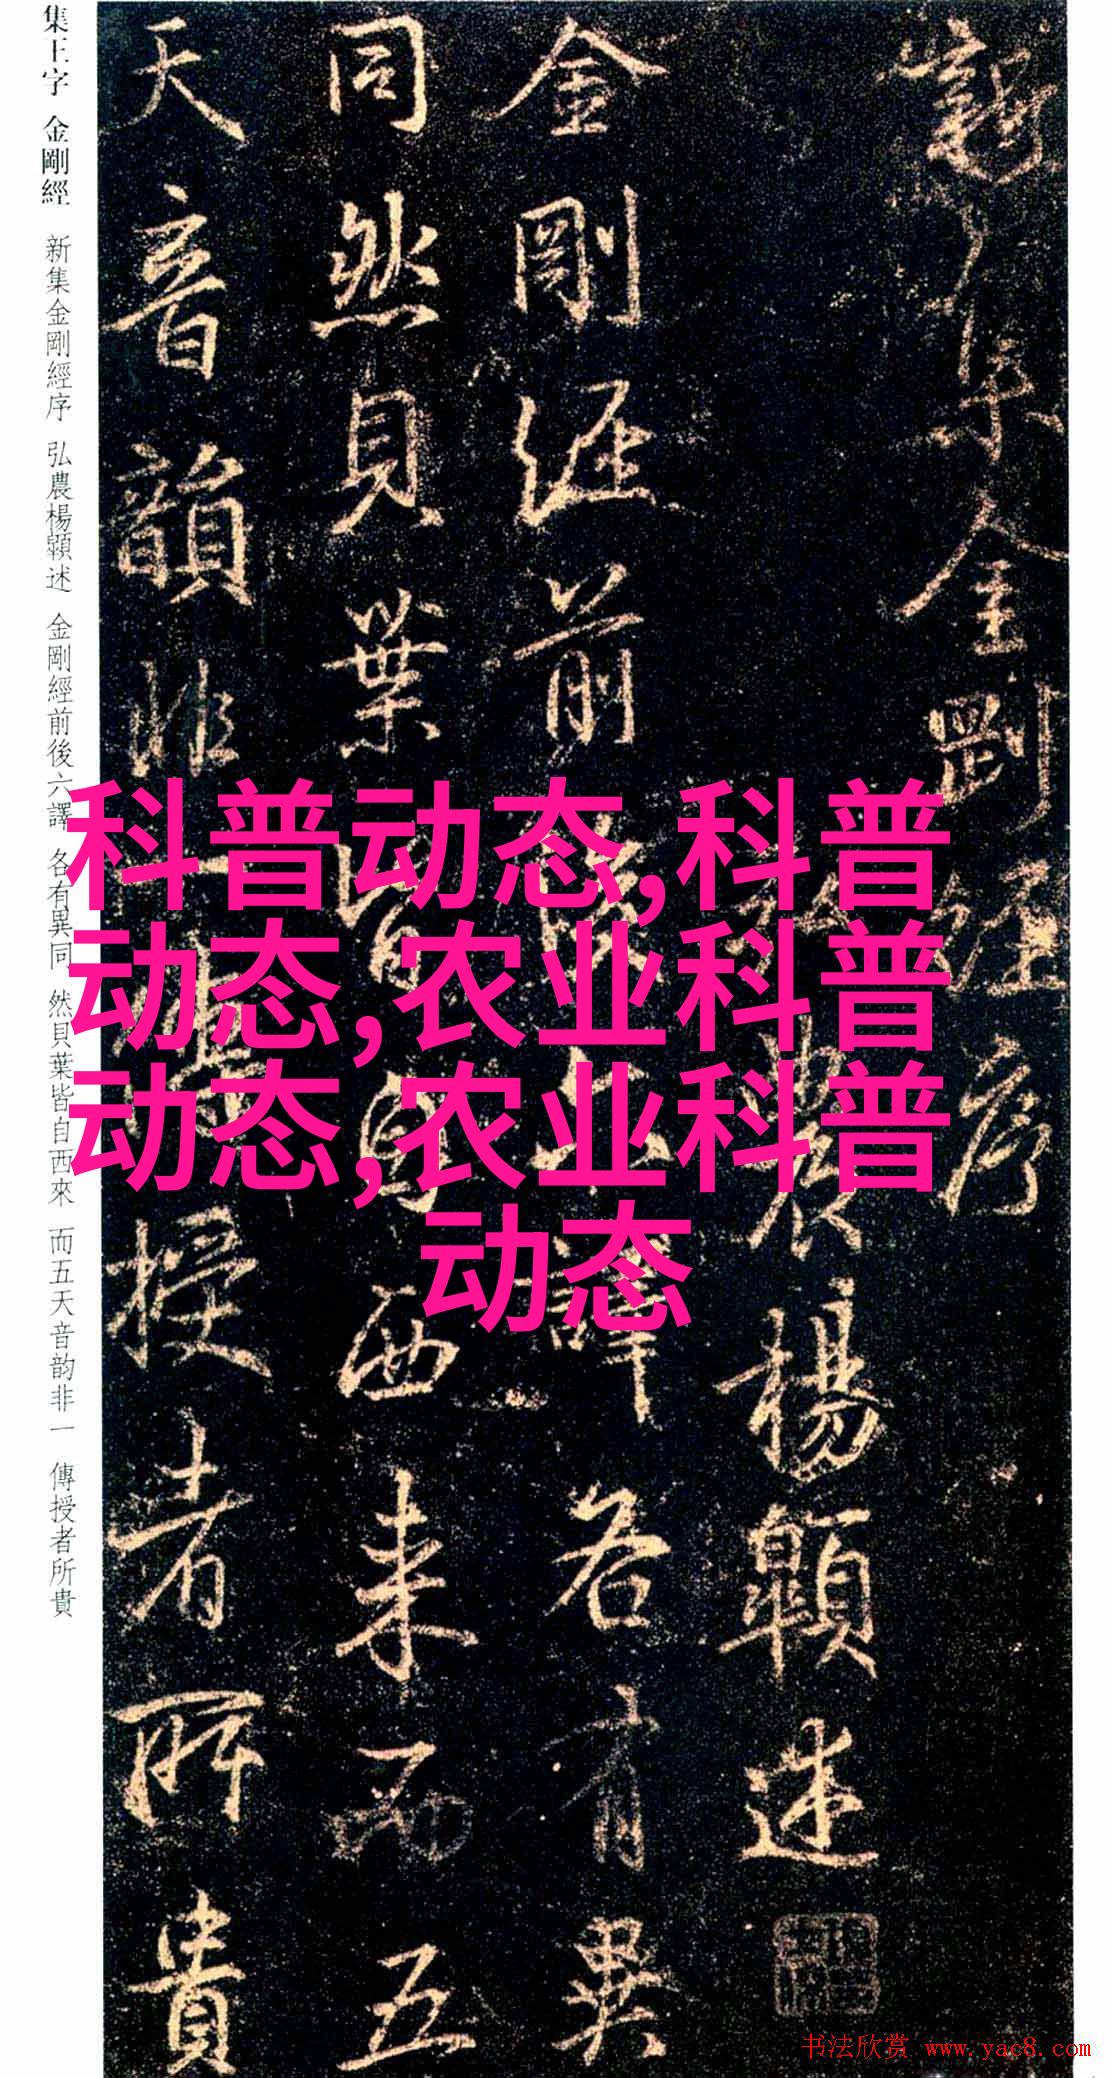 集王字 金剛經 新集金剛經序 弘農楊顗述 金剛經前後六譯 各有異同 然貝葉皆自西來 而五天音韵非一 傳授者所貴
新集金剛經序
農楊顗述
金剛經前六譯各有異
同然貝葉皆自西来而五
天音韻非授者所貴
科普动态,科普
动态,农业科普
动态,农业科普
动态
书法欣赏 www.yac8.com